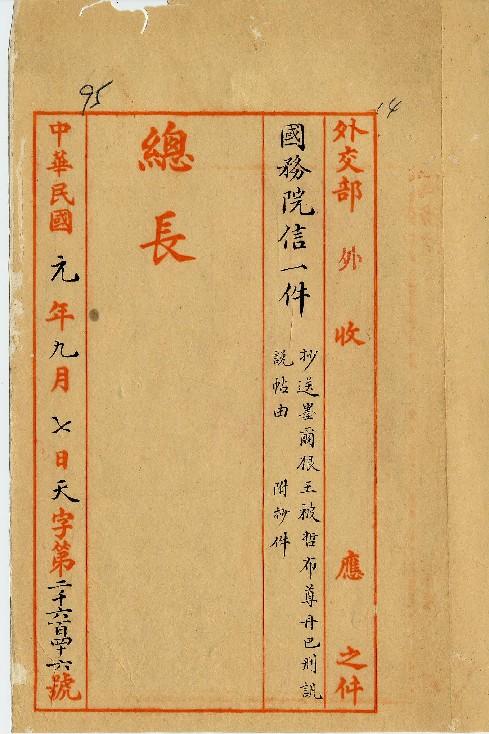 95
14
外交部 外 收 應 之件
國務院信一件
抄送墨爾根王被哲布尊丹巴刑説
説帖由 附抄件
總長
中華民國 元 年 九 月 七 日 天 字第 二千六百四十六 號